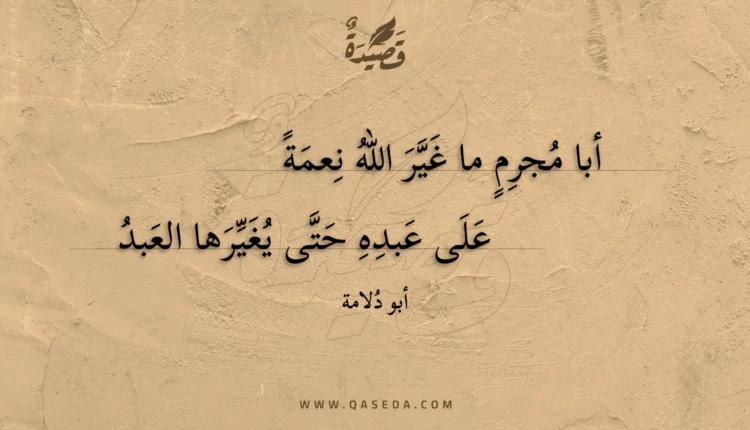 قَصِيدَةٌ
أبا مُجرِمٍ ما غَيَّرَ اللهُ نِعمَةً
عَلَى عَبدِهِ حَتَّى يُغَيِّرَها العَبدُ
أبو دُلامة
WWW.QASEDA.COM